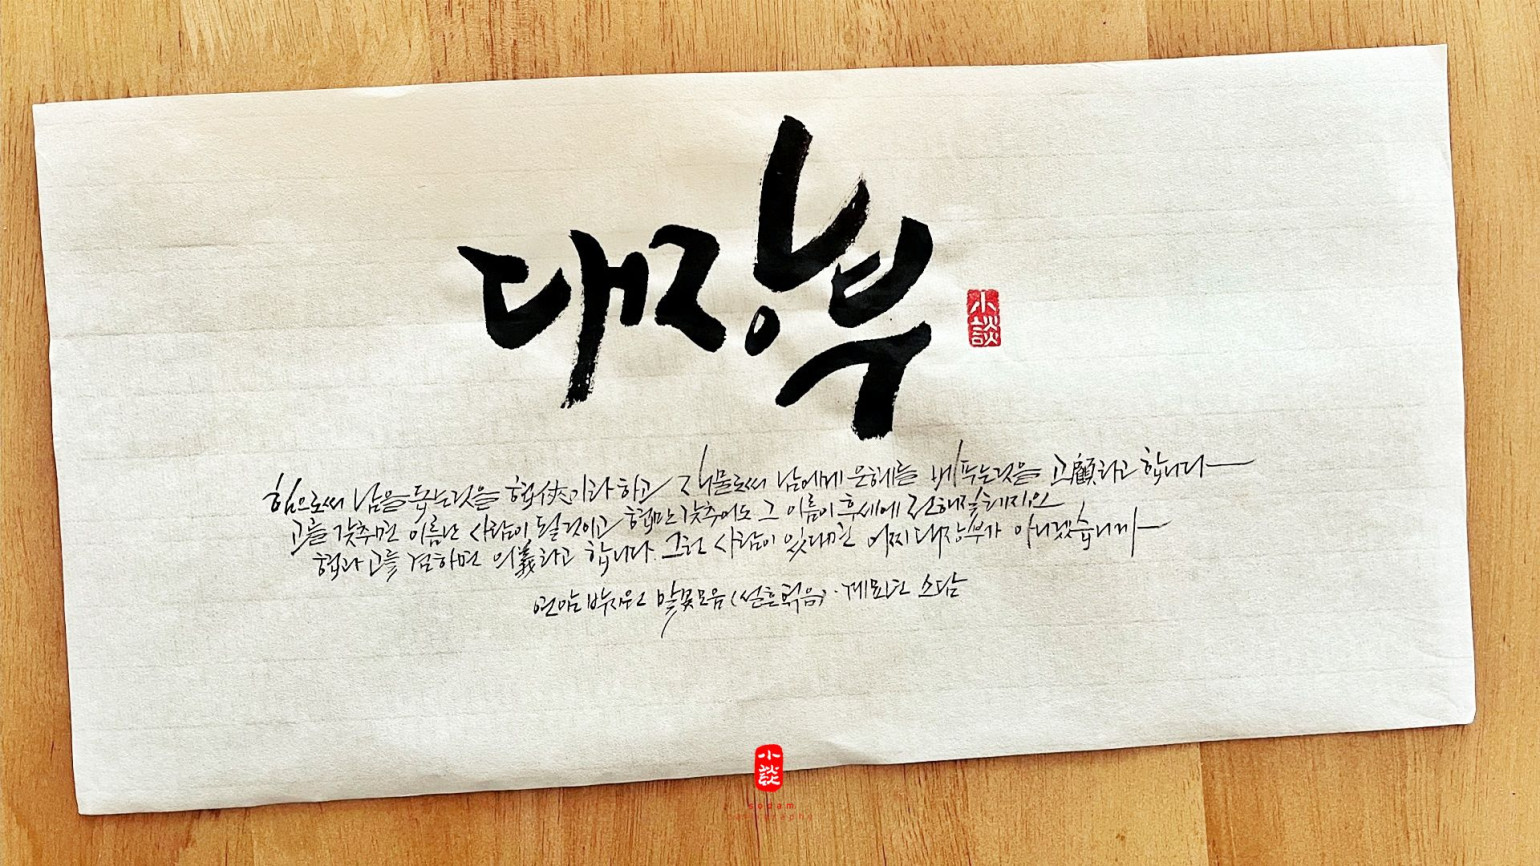 대장부
小談
힘으로써 남을 돕는것을 협俠이라 하고 재물로써 남에게 은혜를 베푸는것을 고顧라고 합니다
고를 갖추면 이름난 사람이 될것이고 협만 갖추어도 그 이름이 후세에 전해질테지요
협과 고를 겸하면 의義라고 합니다. 그런 사람이 있다면 어찌 대장부가 아니겠습니까
연암 박지원 말꽃모음 (설흔 엮음) · 계묘년 소담
小談
sodam
calligraphy